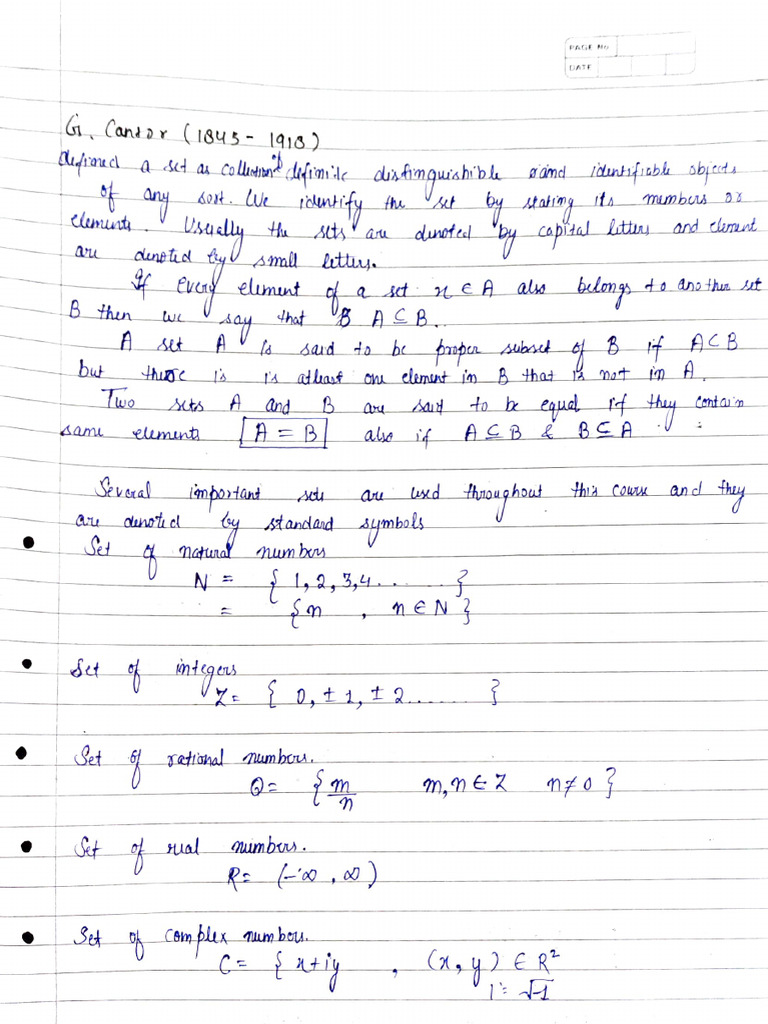 PAGE No
DATE
G. Cantor (1845 - 1918)
defined a set as collection of definite distinguishible and identifiable objects
of any sort. We identify the set by stating its members or
elements. Usually the sets are denoted by capital letters and element
are denoted by small letters.
If every element of a set x ∈ A also belongs to another set
B then we say that A ⊆ B.
A set A is said to be proper subset of B if A ⊂ B
but there is is atleast one element in B that is not in A.
Two sets A and B are said to be equal if they contain
same elements A = B also if A ⊆ B & B ⊆ A
Several important sets are used throughout this course and they
are denoted by standard symbols
• Set of natural numbers
N = { 1, 2, 3, 4 . . . . . . . . }
= { n , n ∈ N }
• Set of integers
Z = { 0, ± 1, ± 2 . . . . . . . }
• Set of rational numbers.
Q = { m/n m, n ∈ Z n ≠ 0 }
• Set of real numbers.
R = (-∞, ∞)
• Set of complex numbers.
C = { x + iy , (x, y) ∈ R²
i = √-1